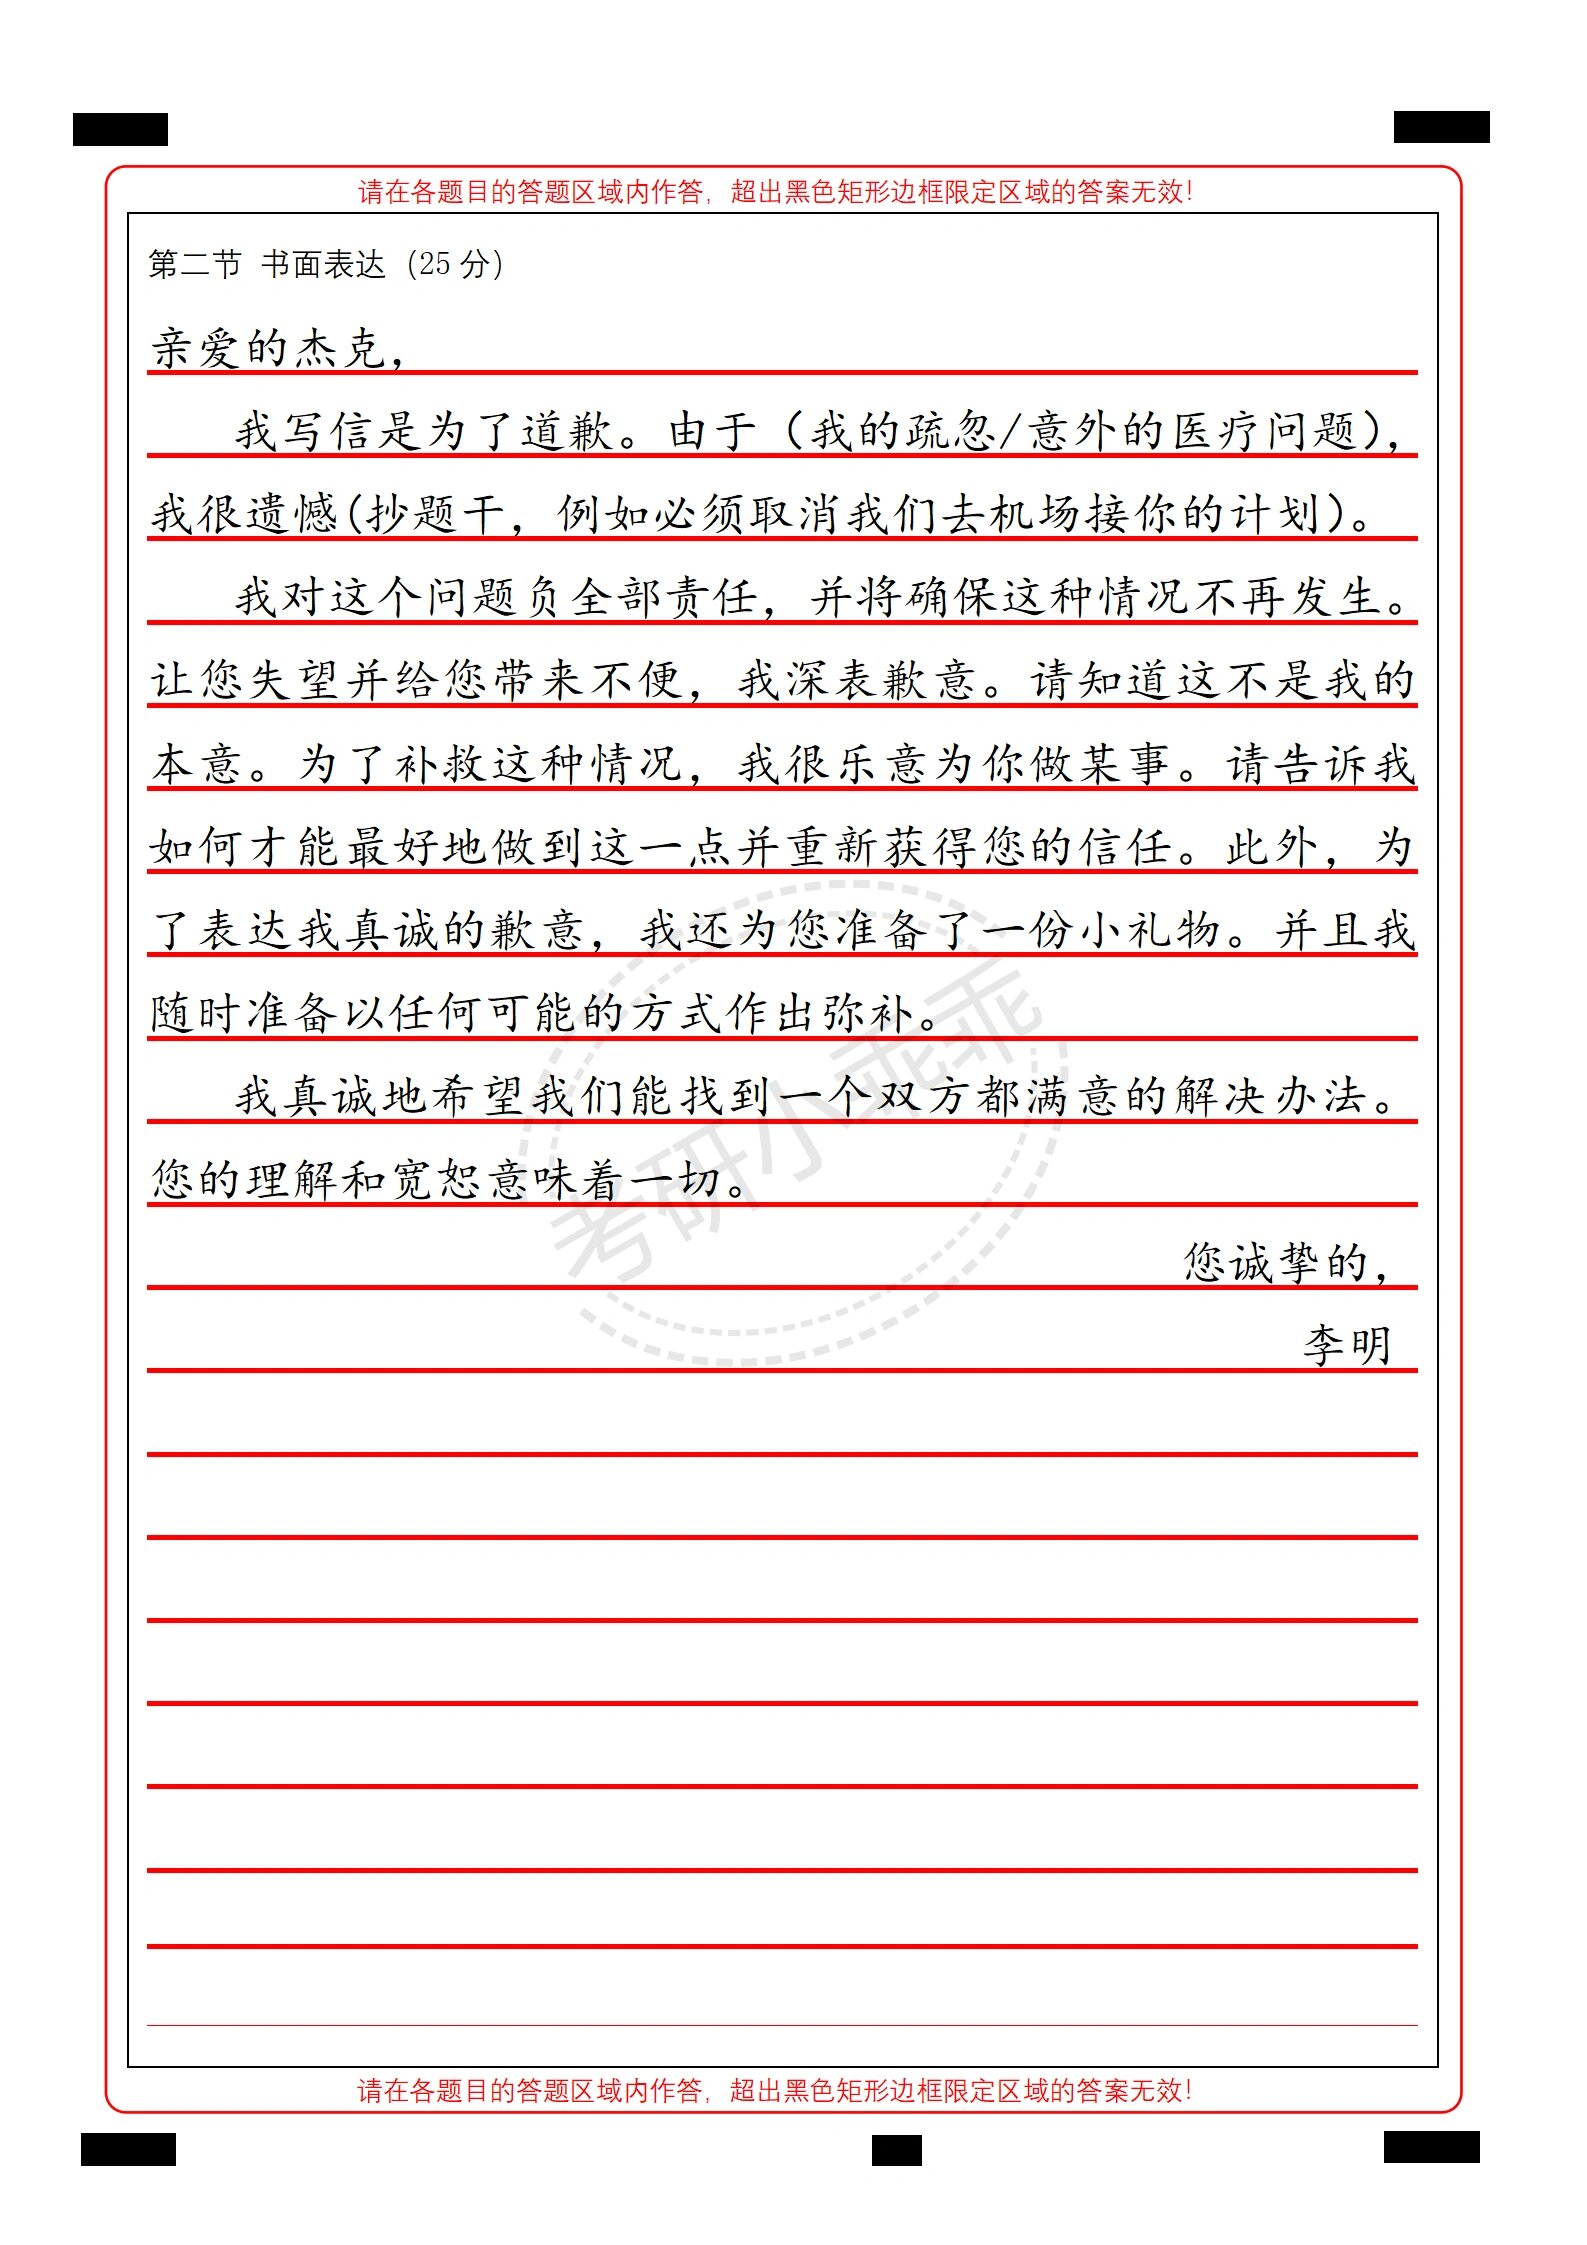 请在各题目的答题区域内作答，超出黑色矩形边框限定区域的答案无效！
第二节 书面表达（25 分）
亲爱的杰克，
我写信是为了道歉。由于（我的疏忽/意外的医疗问题），
我很遗憾(抄题干，例如必须取消我们去机场接你的计划)。
我对这个问题负全部责任，并将确保这种情况不再发生。
让您失望并给您带来不便，我深表歉意。请知道这不是我的
本意。为了补救这种情况，我很乐意为你做某事。请告诉我
如何才能最好地做到这一点并重新获得您的信任。此外，为
了表达我真诚的歉意，我还为您准备了一份小礼物。并且我
随时准备以任何可能的方式作出弥补。
我真诚地希望我们能找到一个双方都满意的解决办法。
您的理解和宽恕意味着一切。
您诚挚的，
李明
考研小乖乖
请在各题目的答题区域内作答，超出黑色矩形边框限定区域的答案无效！